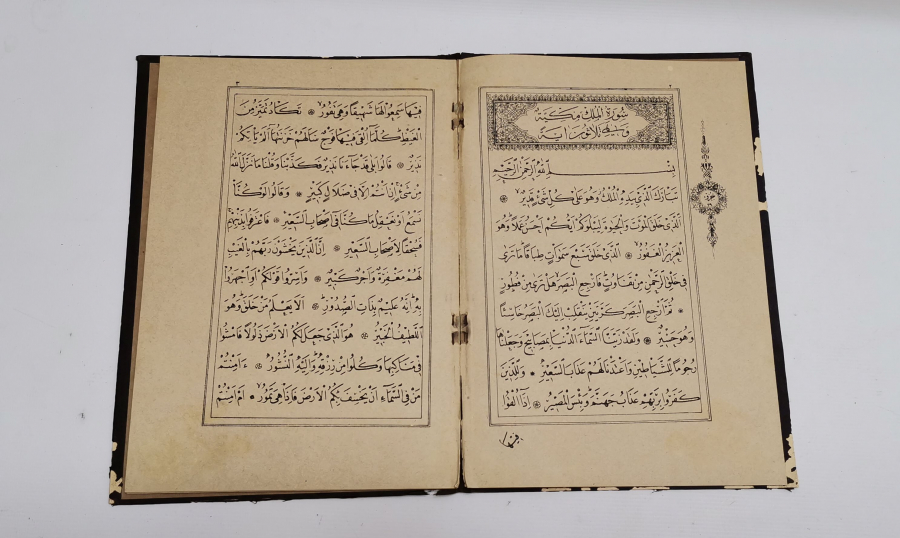 ٢
سورة الملك مكية
وهي ثلاثون اية
بِسْمِ اللّٰهِ الرَّحْمٰنِ الرَّحِيمِ
تَبَارَكَ الَّذِي بِيَدِهِ الْمُلْكُ وَهُوَ عَلٰى كُلِّ شَيْءٍ قَدِيرٌ
الَّذِي خَلَقَ الْمَوْتَ وَالْحَيٰوةَ لِيَبْلُوَكُمْ اَيُّكُمْ اَحْسَنُ عَمَلًا وَهُوَ
الْعَزِيزُ الْغَفُورُ ۞ الَّذِي خَلَقَ سَبْعَ سَمٰوَاتٍ طِبَاقًا مَا تَرٰى
فِي خَلْقِ الرَّحْمٰنِ مِنْ تَفَاوُتٍ فَارْجِعِ الْبَصَرَ هَلْ تَرٰى مِنْ فُطُورٍ
۞ ثُمَّ ارْجِعِ الْبَصَرَ كَرَّتَيْنِ يَنْقَلِبْ اِلَيْكَ الْبَصَرُ خَاسِئًا
وَهُوَ حَسِيرٌ ۞ وَلَقَدْ زَيَّنَّا السَّمَاءَ الدُّنْيَا بِمَصَابِيحَ وَجَعَلْنَاهَا
رُجُومًا لِلشَّيَاطِينِ وَاَعْتَدْنَا لَهُمْ عَذَابَ السَّعِيرِ ۞ وَلِلَّذِينَ
كَفَرُوا بِرَبِّهِمْ عَذَابُ جَهَنَّمَ وَبِئْسَ الْمَصِيرُ ۞ اِذَا اُلْقُوا
فيها
٣
فِيهَا سَمِعُوا لَهَا شَهِيقًا وَهِيَ تَفُورُ ۞ تَكَادُ تَمَيَّزُ مِنَ
الْغَيْظِ كُلَّمَا اُلْقِيَ فِيهَا فَوْجٌ سَاَلَهُمْ خَزَنَتُهَا اَلَمْ يَاْتِكُمْ
نَذِيرٌ ۞ قَالُوا بَلٰى قَدْ جَاءَنَا نَذِيرٌ فَكَذَّبْنَا وَقُلْنَا مَا نَزَّلَ اللّٰهُ
مِنْ شَيْءٍ اِنْ اَنْتُمْ اِلَّا فِي ضَلَالٍ كَبِيرٍ ۞ وَقَالُوا لَوْ كُنَّا
نَسْمَعُ اَوْ نَعْقِلُ مَا كُنَّا فِي اَصْحَابِ السَّعِيرِ ۞ فَاعْتَرَفُوا بِذَنْبِهِمْ
فَسُحْقًا لِاَصْحَابِ السَّعِيرِ ۞ اِنَّ الَّذِينَ يَخْشَوْنَ رَبَّهُمْ بِالْغَيْبِ
لَهُمْ مَغْفِرَةٌ وَاَجْرٌ كَبِيرٌ ۞ وَاَسِرُّوا قَوْلَكُمْ اَوِ اجْهَرُوا
بِهِ اِنَّهُ عَلِيمٌ بِذَاتِ الصُّدُورِ ۞ اَلَا يَعْلَمُ مَنْ خَلَقَ وَهُوَ
اللَّطِيفُ الْخَبِيرُ ۞ هُوَ الَّذِي جَعَلَ لَكُمُ الْاَرْضَ ذَلُولًا فَامْشُوا
فِي مَنَاكِبِهَا وَكُلُوا مِنْ رِزْقِهِ وَاِلَيْهِ النُّشُورُ ۞ ءَاَمِنْتُمْ
مَنْ فِي السَّمَاءِ اَنْ يَخْسِفَ بِكُمُ الْاَرْضَ فَاِذَا هِيَ تَمُورُ ۞ اَمْ اَمِنْتُمْ